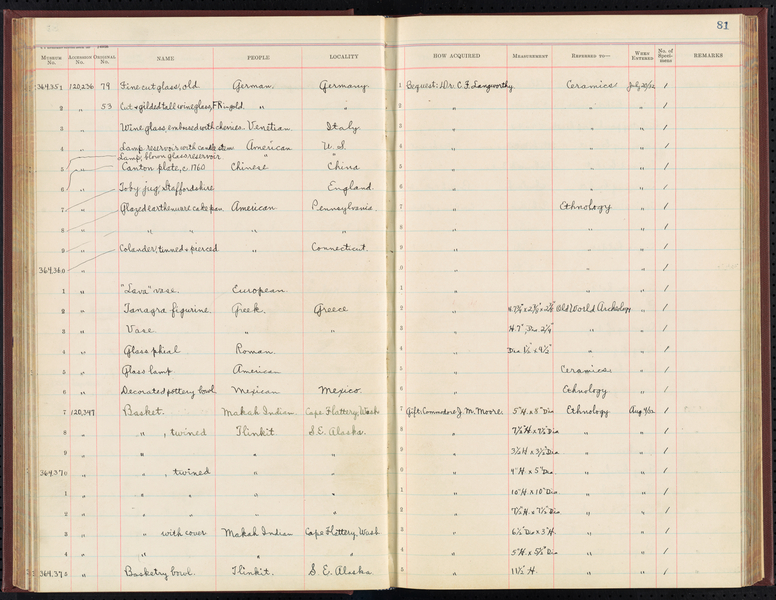 81
MUSEUM No. ACCESSION No. ORIGINAL No. NAME PEOPLE LOCALITY HOW ACQUIRED MEASUREMENT REFERRED TO— WHEN ENTERED No. of Specimens REMARKS
364,351 120,236 79 Fine cut glass, old German. Germany. 1 Bequest: Dr. C. F. Langworthy. Ceramics July 20/32 1
2 " 53 Cut & gilded tall wine glass, FR in gold. " " 2 " " " 1
3 " Wine glass, embossed with cherries. Venetian. Italy. 3 " " " 1
4 " Lamp reservoir with candle stem American U. S. 4 " " " 1
Lamp, blown glass reservoir " "
5 " Canton plate, c. 1760 Chinese China 5 " " " 1
6 " Toby jug, Staffordshire England. 6 " " " 1
7 " Glazed earthenware cake pan American Pennsylvania. 7 " Ethnology " 1
8 " " " " " 8 " " " 1
9 " Colander, tinned & pierced " Connecticut. 9 " " " 1
364,360 " 0 " " " 1
1 " "Lava" vase. European. 1 " " " 1
2 " Tanagra figurine. Greek. Greece 2 " Old World Archeology " 1
3 " Vase " " 3 " H. 7", Dia. 2¼" " " 1
4 " Glass phial Roman. 4 " " " 1
5 " Glass lamp American 5 " Ceramics " 1
6 " Decorated pottery bowl Mexican Mexico. 6 " Ethnology " 1
7 120,347 Basket. Makah Indian. Cape Flattery, Wash 7 Gift: Commodore J. M. Moore. 5" H. x 8" Dia Ethnology Aug 9/32 1
8 " " , twined Tlinkit S. E. Alaska. 8 " 7½" H x 7½" Dia " " 1
9 " " " " 9 " 3½ H. x 3½" Dia. " " 1
364,370 " " , twined " " 0 " 4" H. x 5" Dia " " 1
1 " " " " " 1 " 10" H x 10" Dia " " 1
2 " " " " 2 " 7½" H. x 7½" Dia " " 1
3 " " with cover Makah Indian Cape Flattery, Wash 3 " 6½" Dia x 3" H. " " 1
4 " " " " 4 " 5" H. x 5½" Dia " " 1
364,375 " Basketry bowl. Tlinkit. S. E. Alaska 5 " 11½" H. " " 1